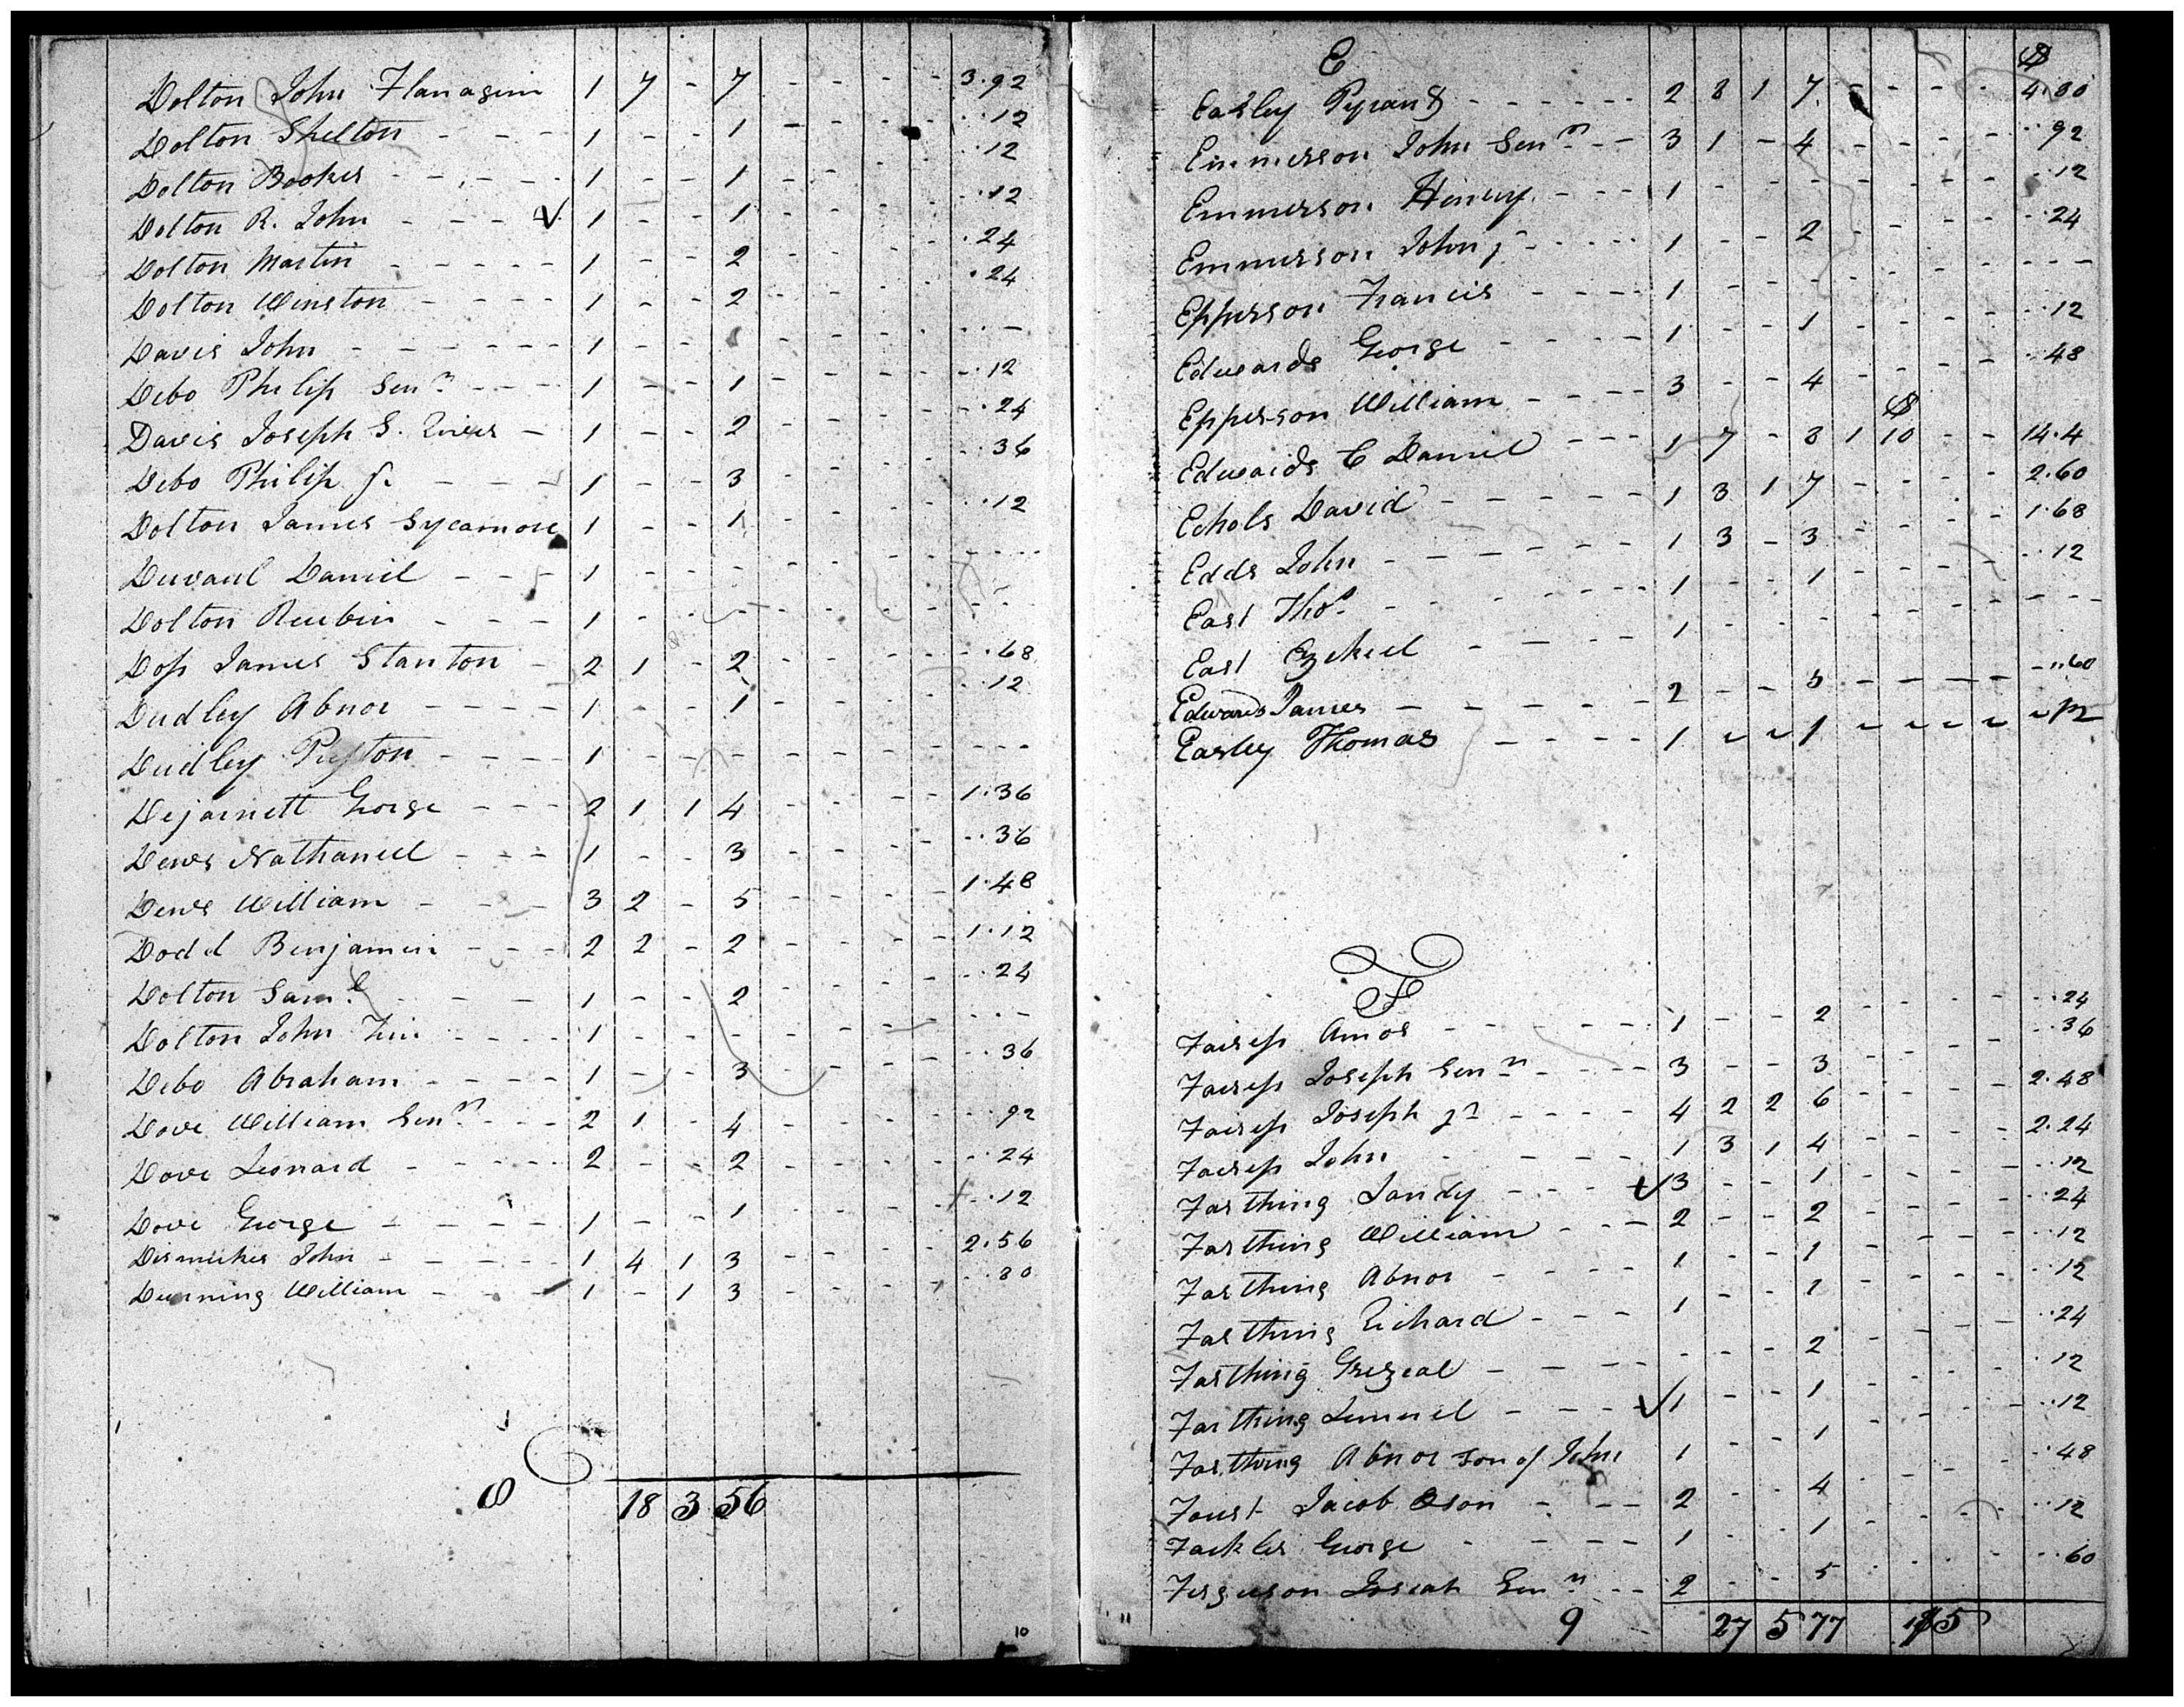 Dolton John Flanagin 1 7 - 7 - - - - 3.92
Dolton Shelton - - - - 1 - - 1 - - - - ..12
Dolton Booker - - - - 1 - - 1 - - - - ..12
Dolton R. John - - - - √ 1 - - 1 - - - - ..12
Dolton Martin - - - - - 1 - - 2 - - - - .24
Dolton Winston - - - - 1 - - 2 - - - - .24
Davis John - - - - - - 1 - - - - - - ...-
Debo Philip Senr - - - 1 - - 1 - - - - ..12
Davis Joseph S. River - 1 - - 2 - - - - ..24
Debo Philip jr - - - - 1 - - 3 - - - - ..36
Dolton James Sycamore 1 - - 1 - - - - ..12
Duvaul Daniel - - - 1 - - - - - - - - - -
Dolton Reubin - - - 1 - - - - - - - - -
Doss James Stanton - 2 1 - 2 - - - - ..68
Dudley Abnor - - - - 1 - - 1 - - - - ..12
Dudley - - - - 1 - - - - - - - - - -
Dejarnett George - - - 2 1 1 4 - - - - 1.36
Dews Nathaniel - - - 1 - - 3 - - - - ..36
Dews William - - - 3 2 - 5 - - - - 1.48
Dodd Benjamin - - - 2 2 - 2 - - - - 1.12
Dolton Saml - - - 1 - - 2 - - - - ..24
Dolton John - - - - 1 - - - - - - - ...-
Debo Abraham - - - - 1 - - 3 - - - - ..36
Dove William Senr - - - 2 1 - 4 - - - - ..92
Dove Leonard - - - - 2 - - 2 - - - - ..24
Dove George - - - - - 1 - - 1 - - - - ..12
Dismukes John - - - - - 1 4 1 3 - - - - 2.56
Dunning William - - - - 1 - 1 3 - - - - ..80
8 18 3 56
10
E $
Easley Pyrant - - - - - - 2 8 1 7 - - - - 4.80
Emmerson John Senr - - 3 1 - 4 - - - - ..92
Emmerson Henry - - - - 1 - - - - - - - ..12
Emmerson John jr - - - - 1 - - 2 - - - - ..24
Epperson Francis - - - - 1 - - - - - - - - - -
Edwards George - - - - 1 - - 1 - - - - ..12
Epperson William - - - - 3 - - 4 - - - - ..48
$
Edwards C Daniel - - - 1 7 - 8 1 10 - - 14.4
Echols David - - - - - 1 3 1 7 - - - - 2.60
Edds John - - - - - - 1 3 - 3 - - - - 1.68
East Thos - - - - - - 1 - - 1 - - - - ..12
East Ezekiel - - - - 1 - - - - - - - - - -
Edwards James - - - - - 2 - - 5 - - - - ..60
Easley Thomas - - - - 1 - - 1 - - - - - 12
F
Fairess Amos - - - - - 1 - - 2 - - - - ..24
Fairess Joseph Senr - - - - 3 - - 3 - - - - ..36
Fairess Joseph jr - - - - 4 2 2 6 - - - - 2.48
Fairess John - - - - - 1 3 1 4 - - - - 2.24
Farthing Sandy - - - - √3 - - 1 - - - - ..12
Farthing William - - - 2 - - 2 - - - - ..24
Farthing Abnor - - - - 1 - - 1 - - - - ..12
Farthing Richard - - - 1 - - 1 - - - - ..12
Farthing - - - - - - - 2 - - - - ..24
Farthing Lemuel - - - √1 - - 1 - - - - .12
Farthing Abnor son of John 1 - - 1 - - - - ..12
Foust Jacob - - - 2 - - 4 - - - - ..48
Fackler George - - - - 1 - - 1 - - - - ..12
Ferguson Josiah Senr - - 2 - - 5 - - - - ..60
11 9 27 5 77